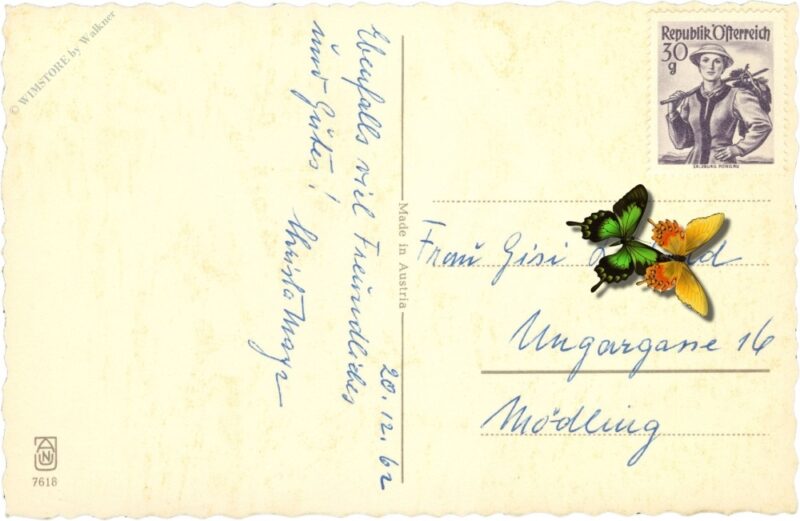 © WIMSTORE by Walkner
Ebenfalls viel Freundliches
und Gutes!
Christa Mayr
20.12.62
Made in Austria
Republik Österreich
30
g
SALZBURG, PONGAU
Frau Gisi
Ungargasse 16
Mödling
7618